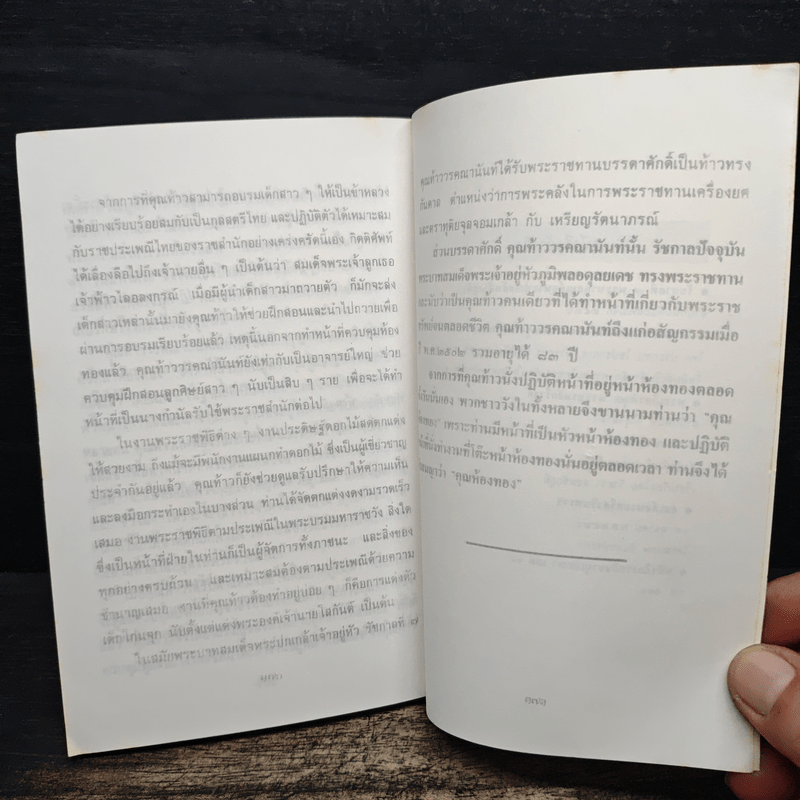 จากการที่คุณท้าวสามารถอบรมเด็กสาว ๆ ให้เป็นข้าหลวง
ได้อย่างเรียบร้อยสมกับเป็นกุลสตรีไทย และปฏิบัติตัวได้เหมาะสม
กับราชประเพณีไทยของราชสำนักอย่างเคร่งครัดนี้เอง กิตติศัพท์
ได้เลื่องลือไปถึงเจ้านายอื่น ๆ เป็นต้นว่า สมเด็จพระเจ้าลูกเธอ
เจ้าฟ้าวไลอลงกรณ์ เมื่อมีผู้นำเด็กสาวมาถวายตัว ก็มักจะส่ง
เด็กสาวเหล่านั้นมายังคุณท้าวให้ช่วยฝึกสอนและนำไปถวายเพื่อ
ผ่านการอบรมเรียบร้อยแล้ว เหตุนี้นอกจากทำหน้าที่ควบคุมห้อง
ทองแล้ว คุณท้าววรคณานันท์ยังเท่ากับเป็นอาจารย์ใหญ่ ช่วย
ควบคุมฝึกสอนลูกศิษย์สาว ๆ นับเป็นสิบ ๆ ราย เพื่อจะได้ทำ
หน้าที่เป็นนางกำนัลรับใช้พระราชสำนักต่อไป
ในงานพระราชพิธีต่าง ๆ งานประดิษฐ์ดอกไม้สดตกแต่ง
ให้สวยงาม ถึงแม้จะมีพนักงานแผนกทำดอกไม้ ซึ่งเป็นผู้เชี่ยวชาญ
ประจำกันอยู่แล้ว คุณท้าวก็ยังช่วยดูแลรับปรึกษาให้ความเห็น
และลงมือกระทำเองในบางส่วน ท่านได้จัดตกแต่งงดงามรวดเร็ว
เสมอ งานพระราชพิธีตามประเพณีในพระบรมมหาราชวัง สิ่งใด
ซึ่งเป็นหน้าที่ฝ่ายในท่านก็เป็นผู้จัดการทั้งภาชนะ และสิ่งของ
ทุกอย่างครบถ้วน และเหมาะสมต้องตามประเพณีด้วยความ
ชำนาญเสมอ งานที่คุณท้าวต้องทำอยู่บ่อย ๆ ก็คือการแต่งตัว
เด็กโกนจุก นับตั้งแต่แต่งพระองค์เจ้านายโสกันต์ เป็นต้น
ในสมัยพระบาทสมเด็จพระปกเกล้าเจ้าอยู่หัว รัชกาลที่ ๗
คุณท้าววรคณานันท์ได้รับพระราชทานบรรดาศักดิ์เป็นท้าวทรง
กันดาล ตำแหน่งว่าการพระคลังในการพระราชทานเครื่องยศ
และตราทุติยจุลจอมเกล้า กับ เหรียญรัตนาภรณ์
ส่วนบรรดาศักดิ์ คุณท้าววรคณานันท์นั้น รัชกาลปัจจุบัน
พระบาทสมเด็จพระเจ้าอยู่หัวภูมิพลอดุลยเดช ทรงพระราชทาน
และนับว่าเป็นคุณท้าวคนเดียวที่ได้ทำหน้าที่เกี่ยวกับพระราช
พิธีมงคลตลอดชีวิต คุณท้าววรคณานันท์ถึงแก่อสัญกรรมเมื่อ
ปี พ.ศ.๒๕๐๒ รวมอายุได้ ๘๓ ปี
จากการที่คุณท้าวนั่งปฏิบัติหน้าที่อยู่หน้าห้องทองตลอด
พวกชาววังในทั้งหลายจึงขานนามท่านว่า "คุณ
ห้องทอง" เพราะท่านมีหน้าที่เป็นหัวหน้าห้องทอง และปฏิบัติ
ที่นั่งทำงานที่โต๊ะหน้าห้องทองนั่นอยู่ตลอดเวลา ท่านจึงได้
"คุณห้องทอง"